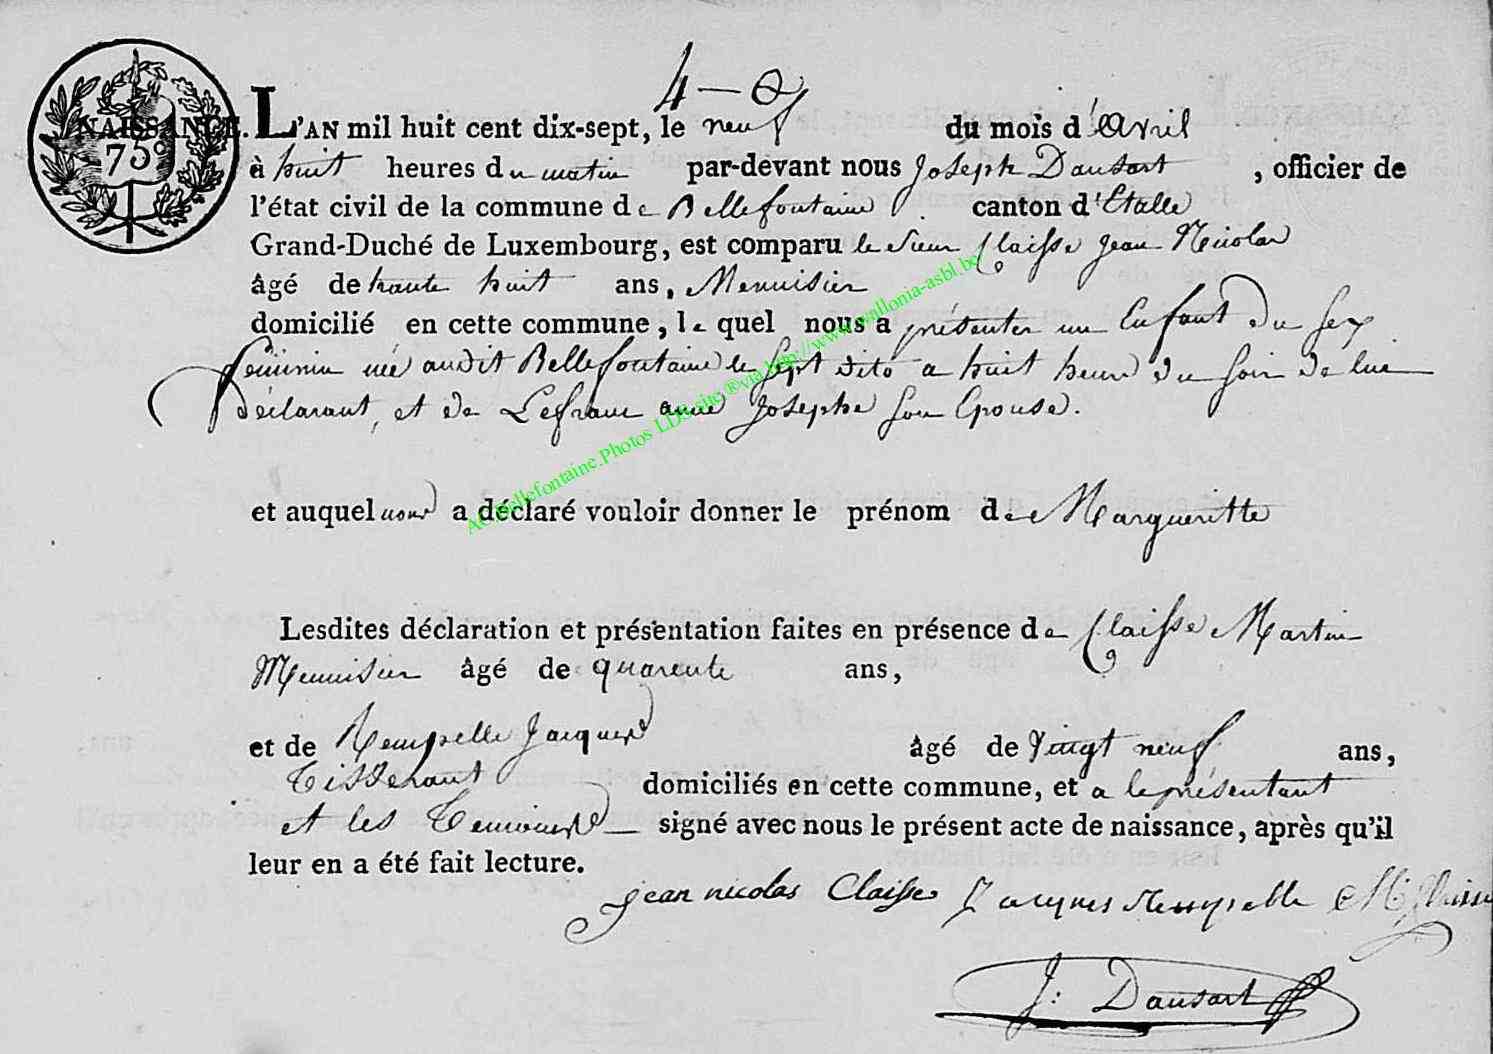 4 – 9
NAISSANCE. L'AN mil huit cent dix-sept, le neuf du mois d'avril
75c
à huit heures du matin par-devant nous Joseph Dausart, officier de
l'état civil de la commune de Bellefontaine canton d'Etalle
Grand-Duché de Luxembourg, est comparu le sieur Claisse jean Nicolas
âgé de trante huit ans, Menuisier
domicilié en cette commune, lequel nous a présenter un Enfant du sex
féminin née audit Bellefontaine le sept dito a huit heure du soir de lui
déclarant, et de Lefranc anne Josephe son Epouse.
et auquel nous a déclaré vouloir donner le prénom de Margueritte
Lesdites déclaration et présentation faites en présence de Claisse Martin
Menuisier âgé de quarente ans,
et de Jacques âgé de vingt neuf ans,
Tisserant domiciliés en cette commune, et a le présentant
et les Temoins signé avec nous le présent acte de naissance, après qu'il
leur en a été fait lecture.
jean nicolas Claisse Jacques M Claisse
J: Dausart
AC Bellefontaine.Photos LDS site ®via http://www.wallonia-asbl.be